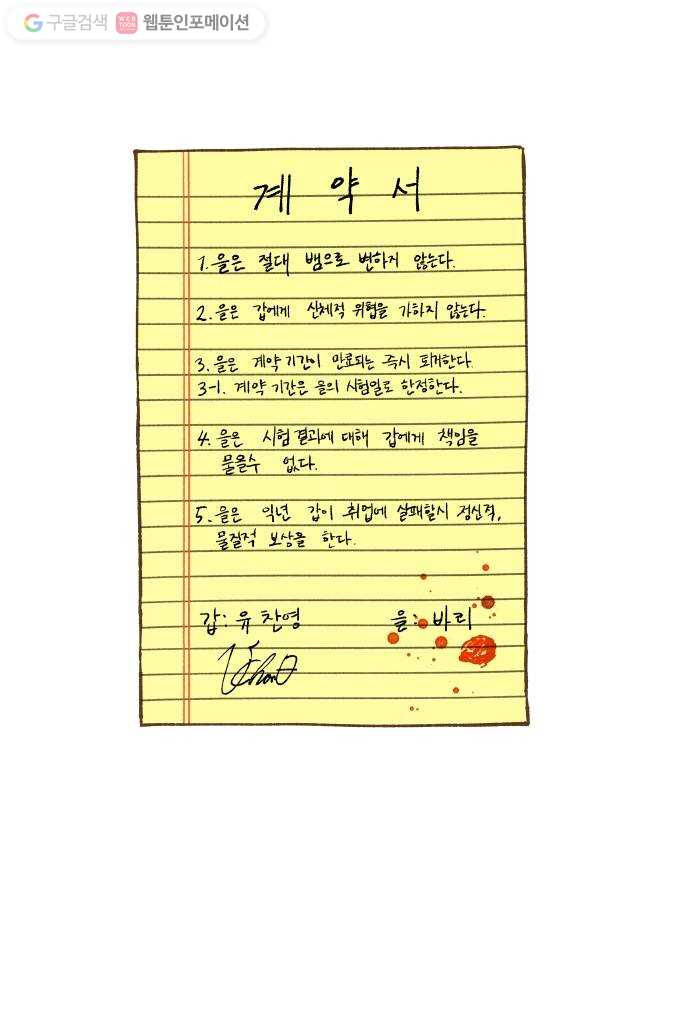 구글검색 WEB TOON 웹툰인포메이션
계약서
1. 을은 절대 뱀으로 변하지 않는다.
2. 을은 갑에게 신체적 위협을 가하지 않는다.
3. 을은 계약기간이 만료되는 즉시 퇴거한다.
3-1. 계약 기간은 을의 시험일로 한정한다.
4. 을은 시험결과에 대해 갑에게 책임을
물을수 없다.
5. 을은 익년 갑이 취업에 실패할시 정신적,
물질적 보상을 한다.
갑: 유찬영 을: 바리